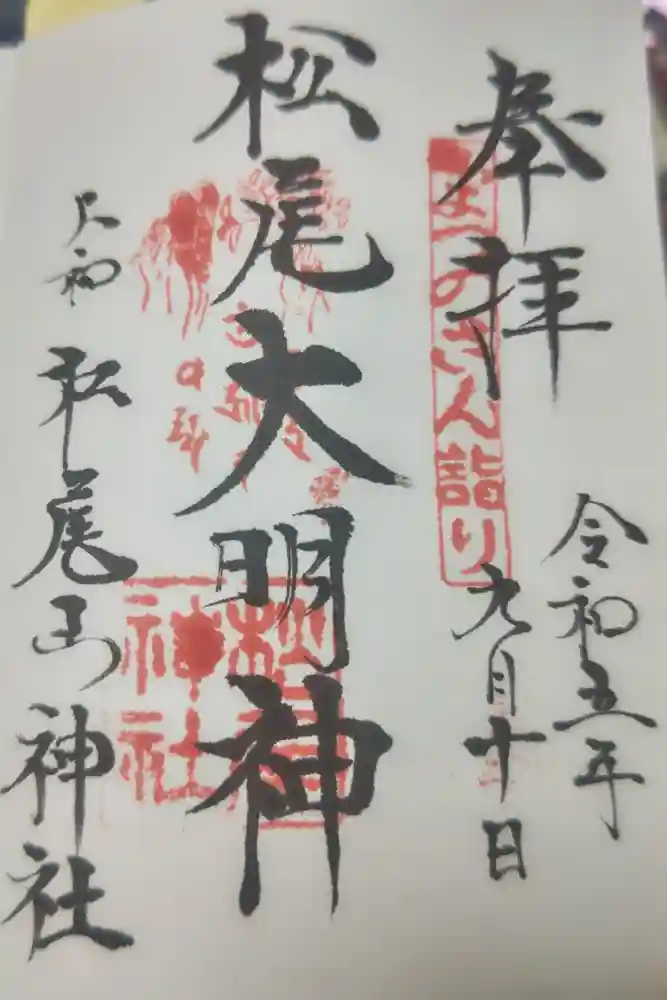 奉拝
まつのさん詣り
令和五年
九月十日
松尾大明神
松尾
神社
大和 松尾山神社